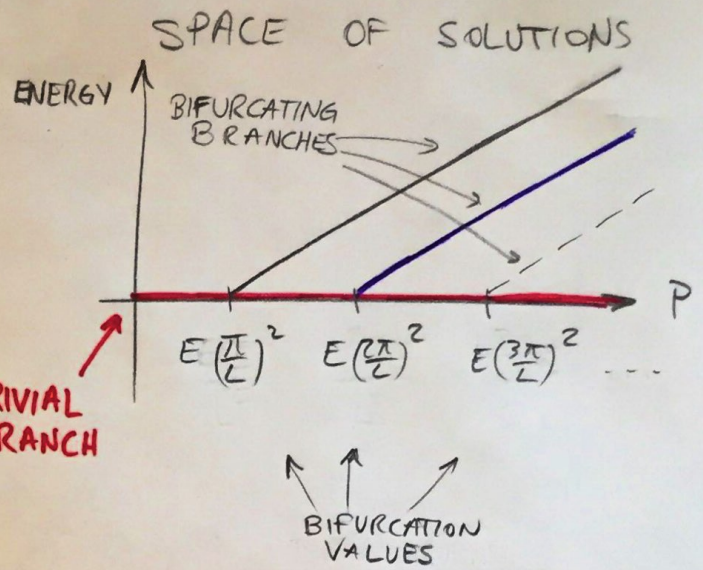 SPACE OF SOLUTIONS
ENERGY
BIFURCATING
BRANCHES
P
E(π/L)² E(2π/L)² E(3π/L)² ....
RIVIAL
RANCH
BIFURCATION
VALUES